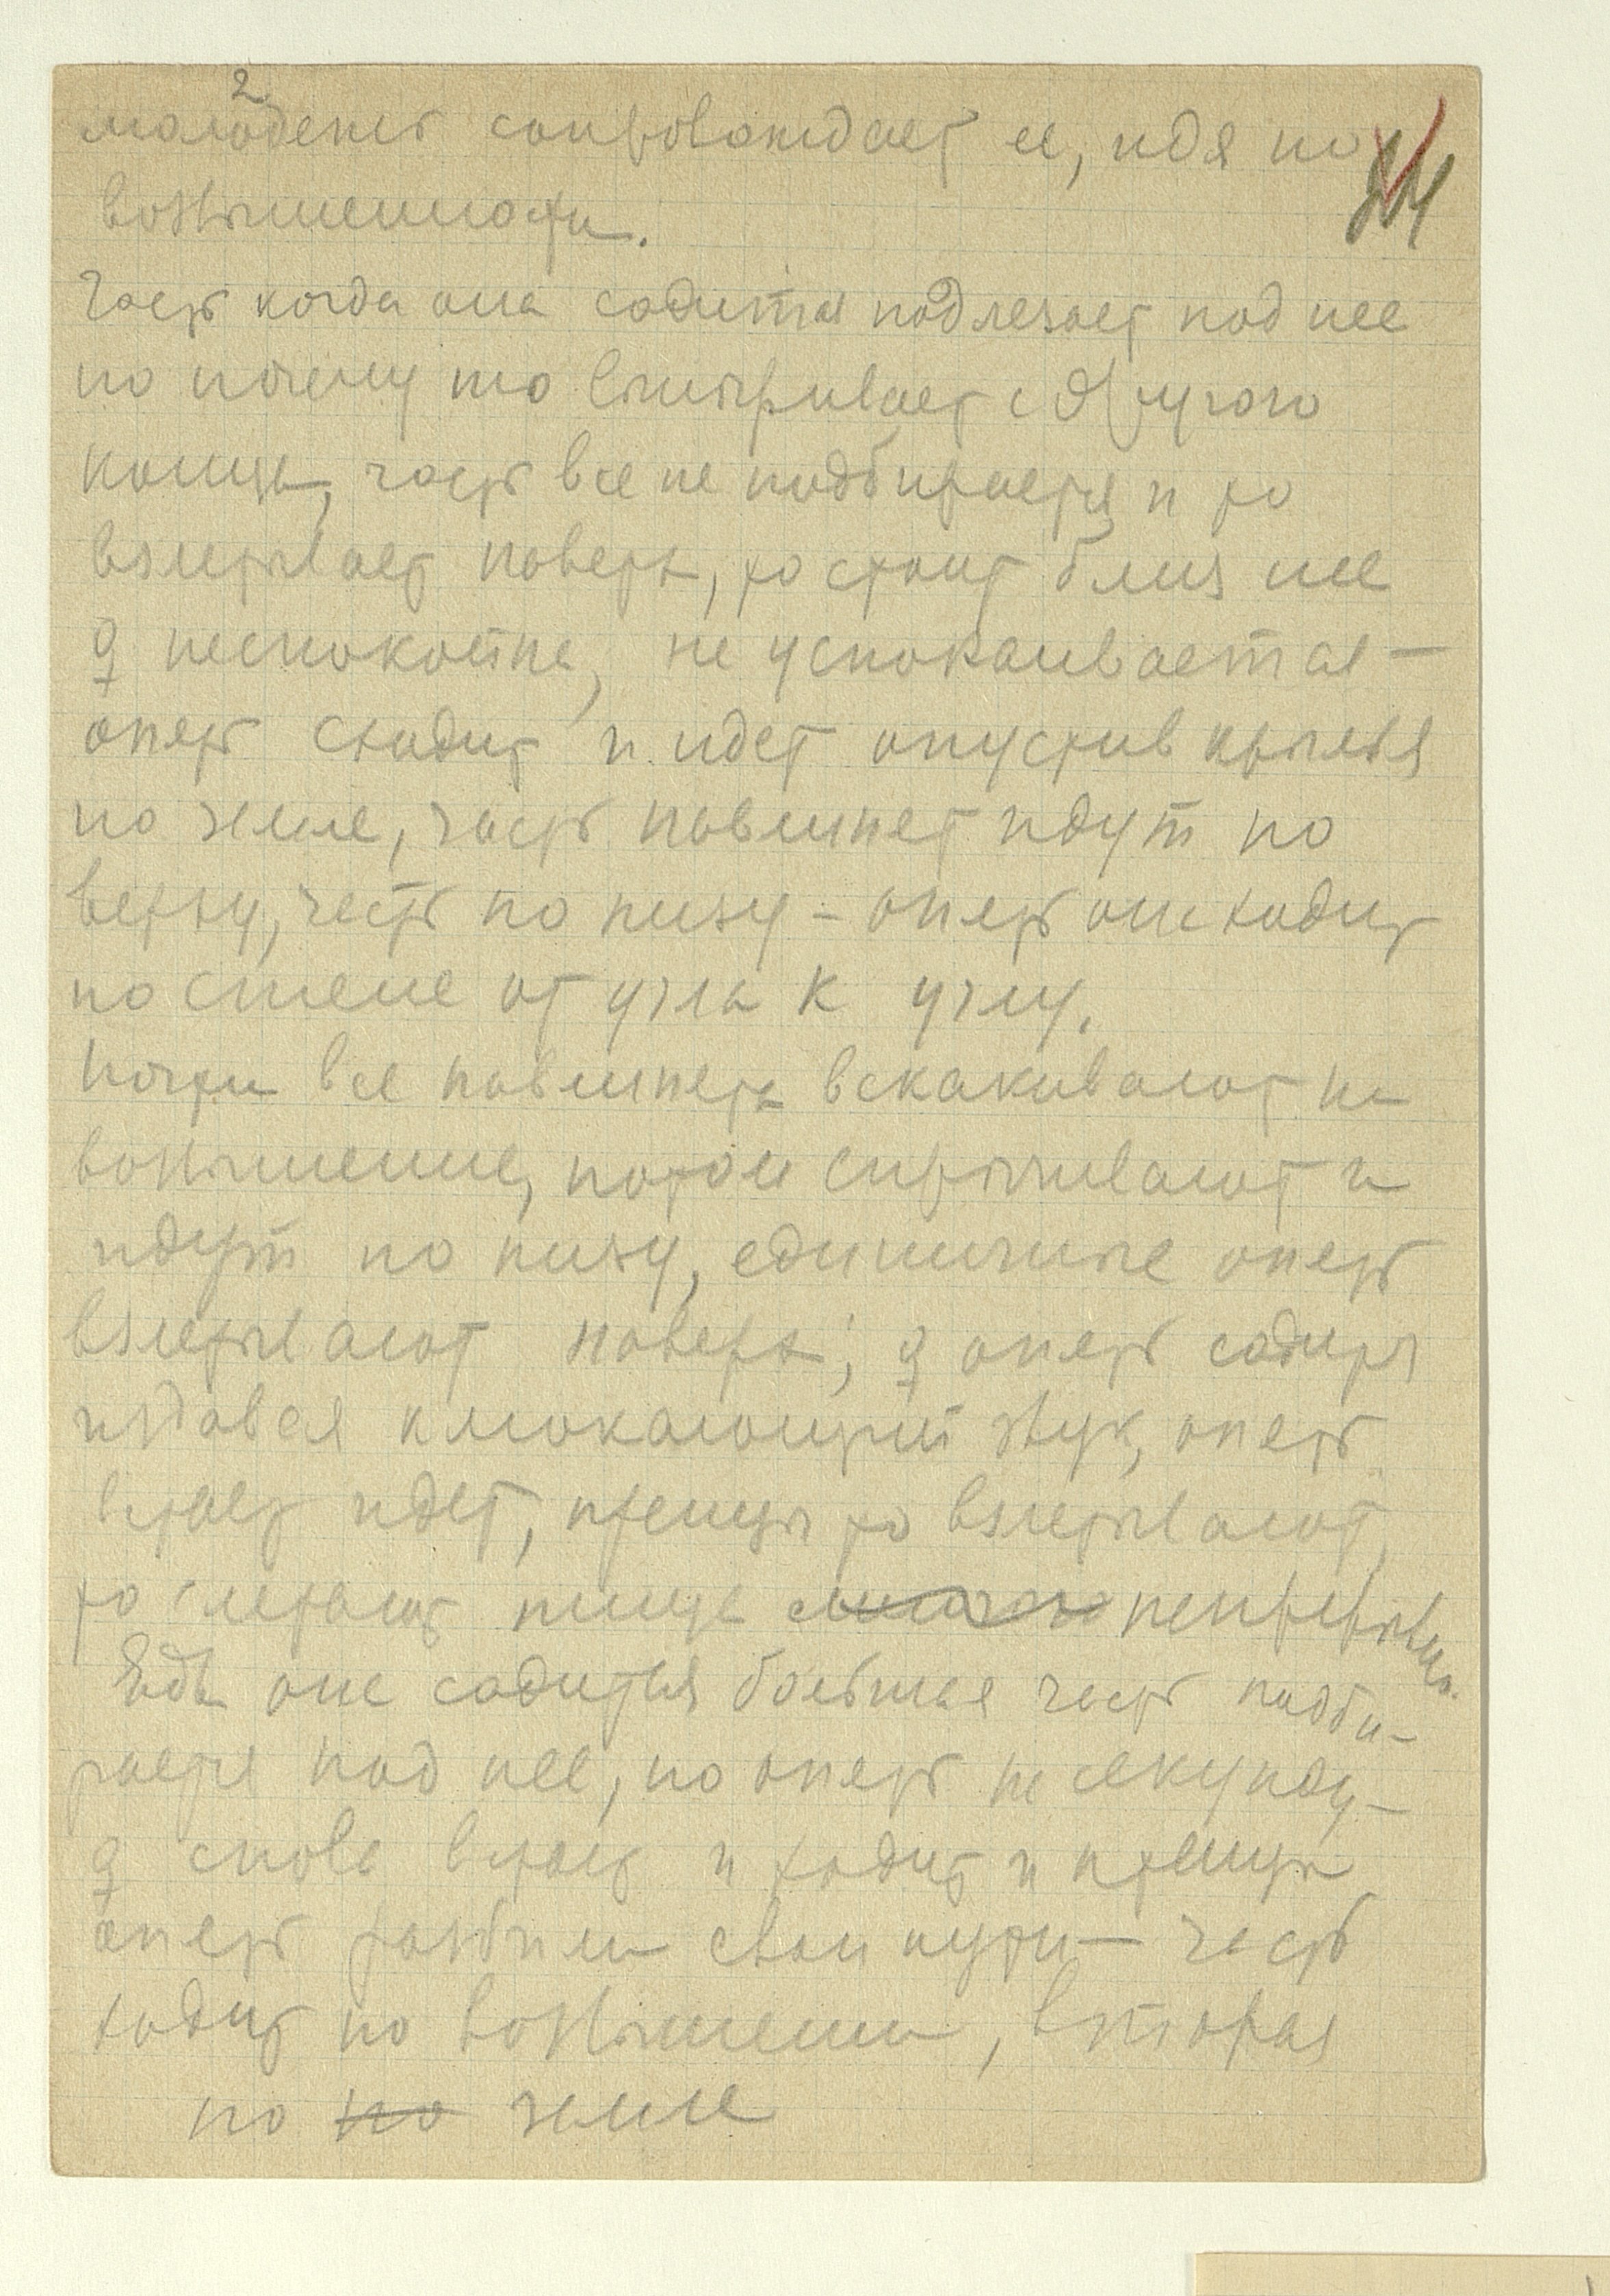 2
молодежь сопровождает ее, идя по
возвышенности.
Часть когда она садится подлезает под нее
но почему то выныривает с другого
конца, часть все не подбирается и то
взлетывает поверх, то стоит близ нее
♀ неспокойна, не успокаивается —
опять сходит и идет опустив крылья
по земле, часть павлинят идут по
верху, часть по низу – опять она ходит
по стене от угла к углу.
Почти все павлинята вскакивают на
возвышение, потом спрыгивают и
идут по низу, единичные опять
взлетывают поверх; ♀ опять садится
издавая клюкающий звук, опять
встает идет, птенцы то взлетывают,
то слетают пища непрерывно.
Едва она садится большая часть подби-
рается под нее, но опять на секунду –
♀ снова встает и ходит и птенцы
опять разбили свои пути — часть
ходит по возвышению, вторая
по по земле